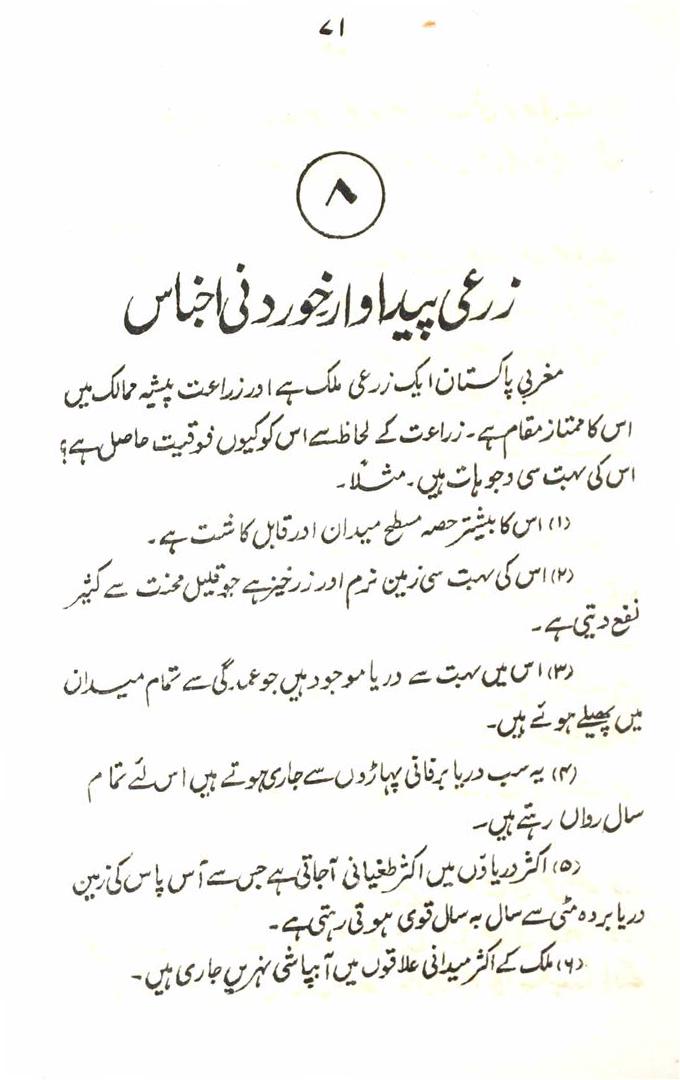 ۷۱
۸
زرعی پیداوار۔خوردنی اجناس
مغربی پاکستان ایک زرعی ملک ہے اور زراعت پیشہ ممالک میں
اس کا ممتاز مقام ہے۔ زراعت کے لحاظ سے اس کو کیوں فوقیت حاصل ہے؟
اس کی بہت سی وجوہات ہیں۔ مثلاً۔
(۱) اس کا بیشتر حصہ مسطح میدان اور قابل کاشت ہے۔
(۲) اس کی بہت سی زمین نرم اور زرخیز ہے جو قلیل محنت سے کثیر
نفع دیتی ہے۔
(۳) اس میں بہت سے دریا موجود ہیں جو عمدگی سے تمام میدان
میں پھیلے ہوئے ہیں۔
(۴) یہ سب دریا برفانی پہاڑوں سے جاری ہوتے ہیں اس لئے تمام
سال رواں رہتے ہیں۔
(۵) اکثر دریاؤں میں اکثر طغیانی آجاتی ہے جس سے آس پاس کی زمین
دریا بردہ مٹی سے سال بہ سال قوی ہوتی رہتی ہے۔
(۶) ملک کے اکثر میدانی علاقوں میں آبپاشی نہریں جاری ہیں۔